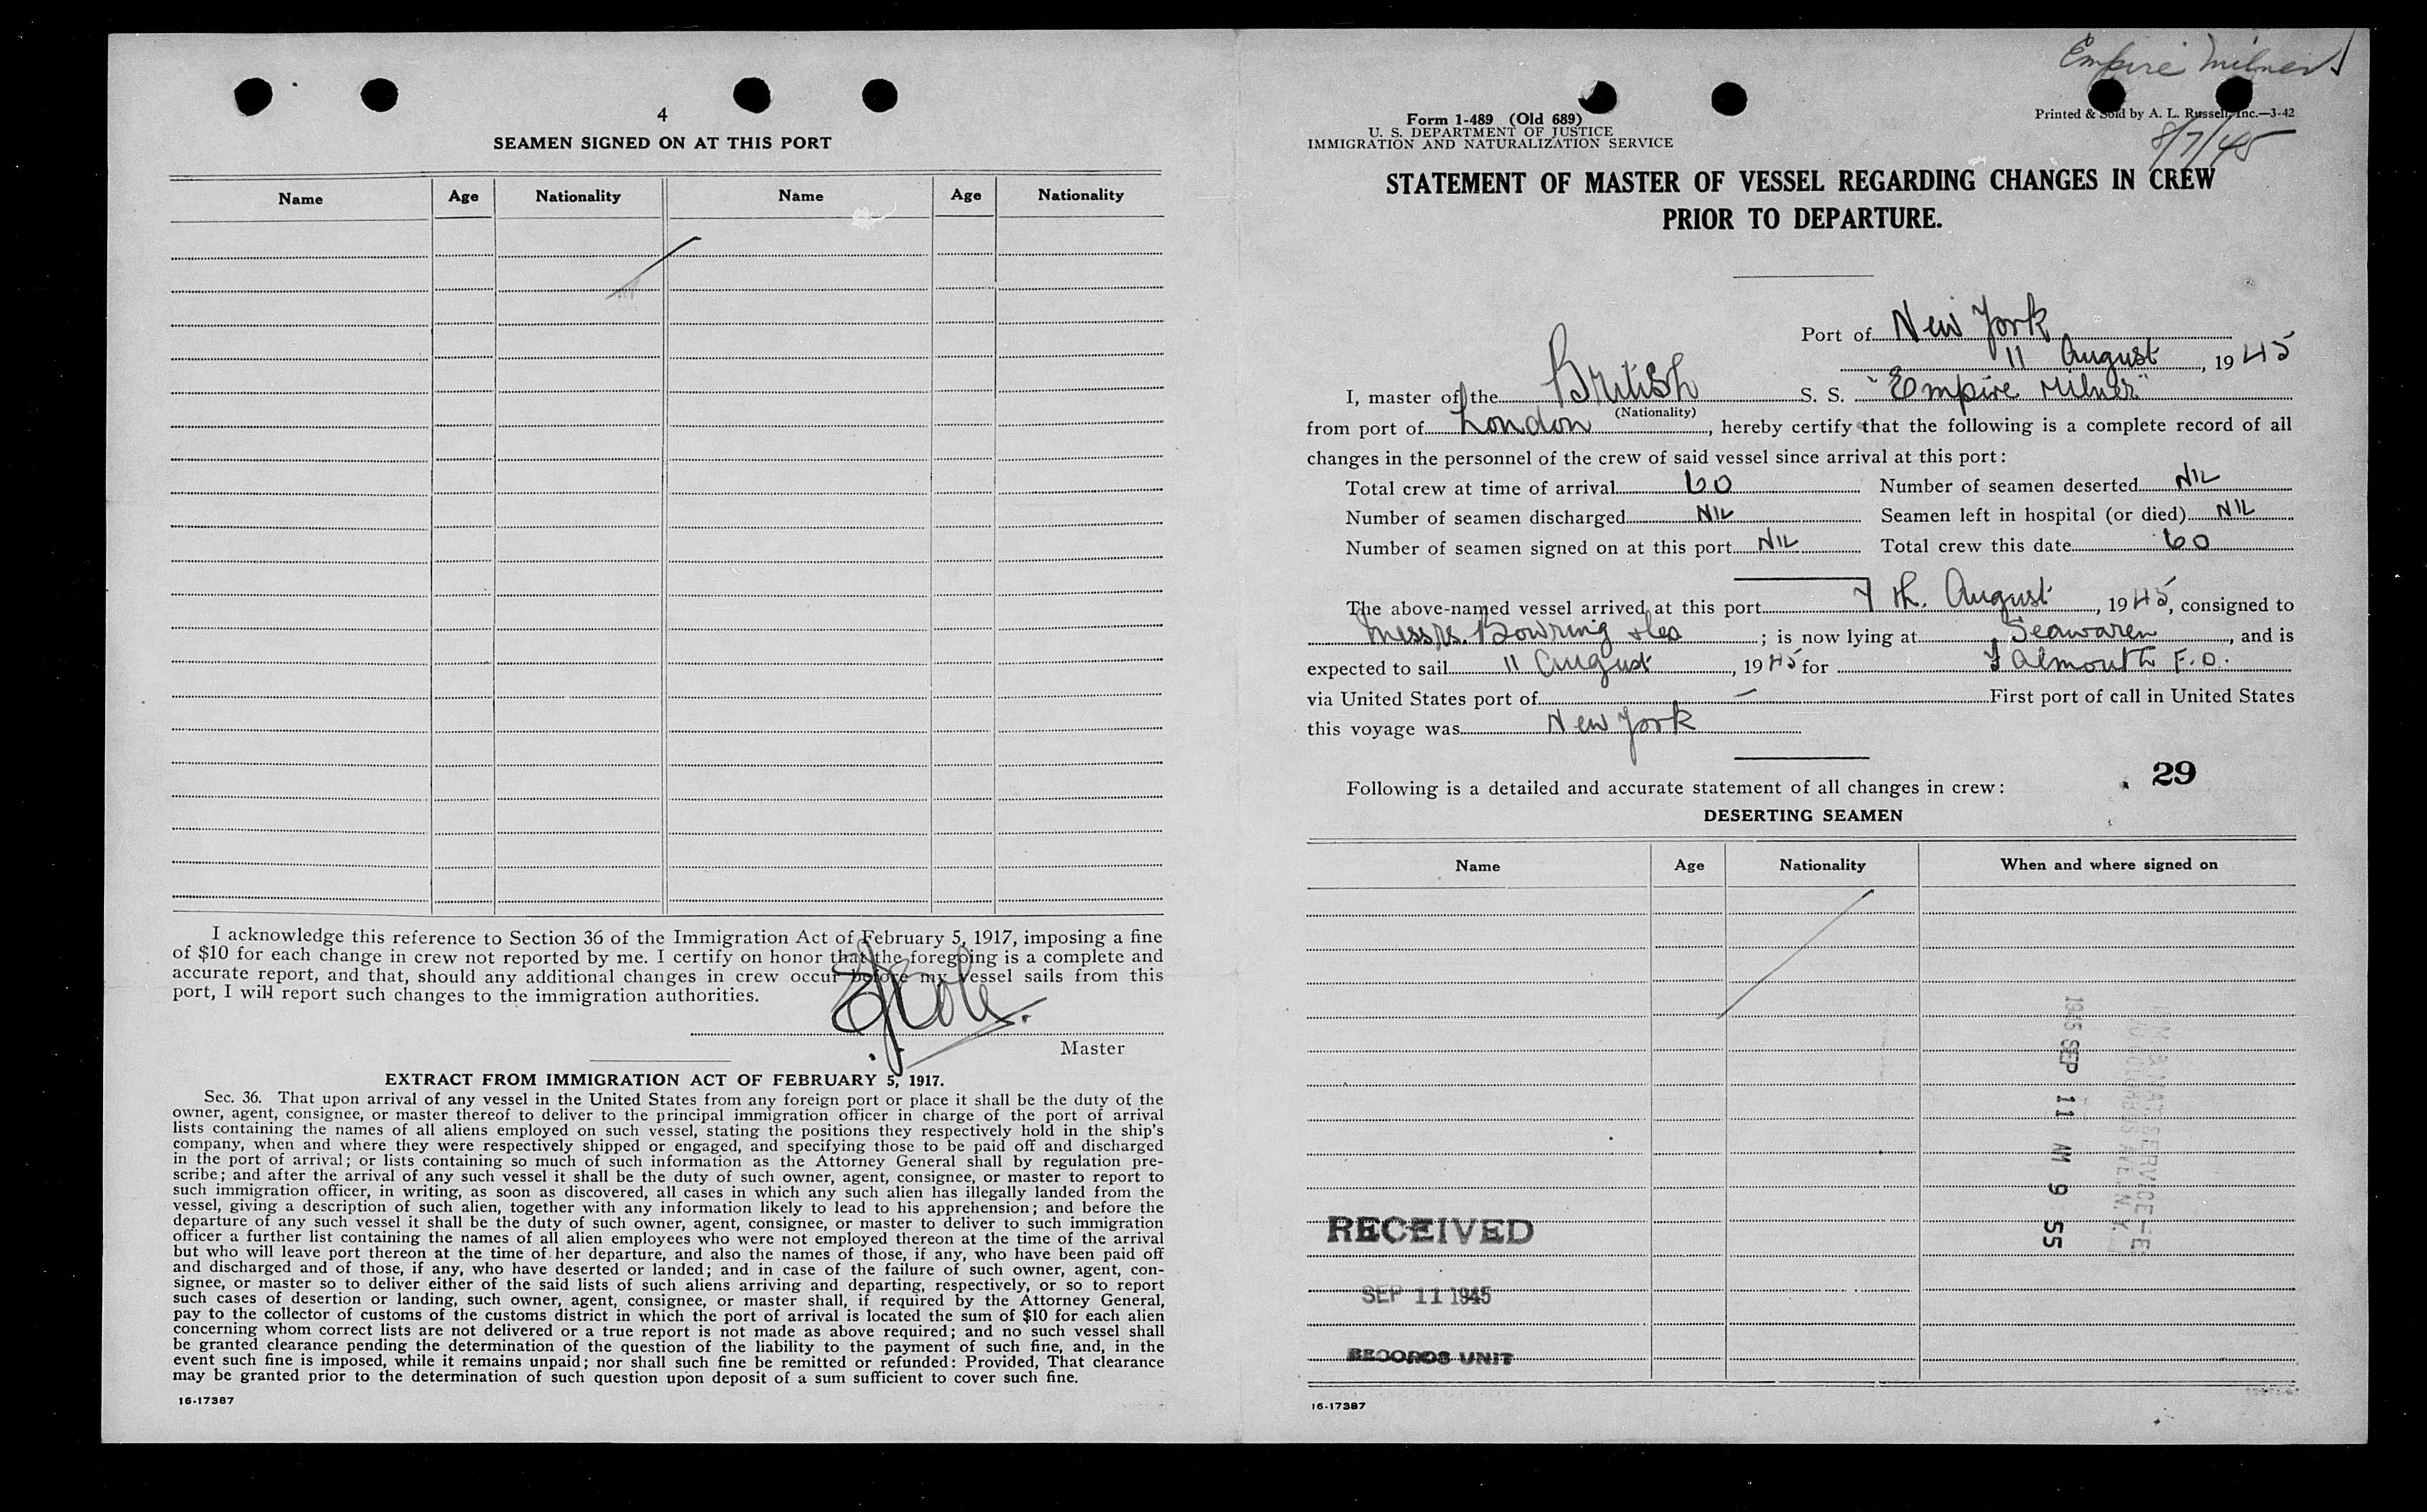 4
SEAMEN SIGNED ON AT THIS PORT
Name Age Nationality Name Age Nationality
I acknowledge this reference to Section 36 of the Immigration Act of February 5, 1917, imposing a fine
of $10 for each change in crew not reported by me. I certify on honor that the foregoing is a complete and
accurate report, and that, should any additional changes in crew occur before my vessel sails from this
port, I will report such changes to the immigration authorities.
Master
EXTRACT FROM IMMIGRATION ACT OF FEBRUARY 5, 1917.
Sec. 36. That upon arrival of any vessel in the United States from any foreign port or place it shall be the duty of the
owner, agent, consignee, or master thereof to deliver to the principal immigration officer in charge of the port of arrival
lists containing the names of all aliens employed on such vessel, stating the positions they respectively hold in the ship's
company, when and where they were respectively shipped or engaged, and specifying those to be paid off and discharged
in the port of arrival; or lists containing so much of such information as the Attorney General shall by regulation pre-
scribe; and after the arrival of any such vessel it shall be the duty of such owner, agent, consignee, or master to report to
such immigration officer, in writing, as soon as discovered, all cases in which any such alien has illegally landed from the
vessel, giving a description of such alien, together with any information likely to lead to his apprehension; and before the
departure of any such vessel it shall be the duty of such owner, agent, consignee, or master to deliver to such immigration
officer a further list containing the names of all alien employees who were not employed thereon at the time of the arrival
but who will leave port thereon at the time of her departure, and also the names of those, if any, who have been paid off
and discharged and of those, if any, who have deserted or landed; and in case of the failure of such owner, agent, con-
signee, or master so to deliver either of the said lists of such aliens arriving and departing, respectively, or so to report
such cases of desertion or landing, such owner, agent, consignee, or master shall, if required by the Attorney General,
pay to the collector of customs of the customs district in which the port of arrival is located the sum of $10 for each alien
concerning whom correct lists are not delivered or a true report is not made as above required; and no such vessel shall
be granted clearance pending the determination of the question of the liability to the payment of such fine, and, in the
event such fine is imposed, while it remains unpaid; nor shall such fine be remitted or refunded: Provided, That clearance
may be granted prior to the determination of such question upon deposit of a sum sufficient to cover such fine.
16-17387
Empire Milner
Form 1-489 (Old 689)
U. S. DEPARTMENT OF JUSTICE
IMMIGRATION AND NATURALIZATION SERVICE
Printed & Sold by A. L. Russell, Inc.—3-42
8/7/45
STATEMENT OF MASTER OF VESSEL REGARDING CHANGES IN CREW
PRIOR TO DEPARTURE.
Port of New York
11 August, 1945
I, master of the British S. S. "Empire Milner"
(Nationality)
from port of London, hereby certify that the following is a complete record of all
changes in the personnel of the crew of said vessel since arrival at this port:
Total crew at time of arrival 60 Number of seamen deserted NIL
Number of seamen discharged NIL Seamen left in hospital (or died) NIL
Number of seamen signed on at this port NIL Total crew this date 60
The above-named vessel arrived at this port 7th. August, 1945, consigned to
Messrs. Bowring &Co; is now lying at Seawaren, and is
expected to sail 11 August, 1945 for Falmouth F.O.
via United States port of — First port of call in United States
this voyage was New York
29
Following is a detailed and accurate statement of all changes in crew:
DESERTING SEAMEN
Name Age Nationality When and where signed on
1945 SEP 11 AM 9 55
RECEIVED
SEP 11 1945
RECORDS UNIT
16-17387